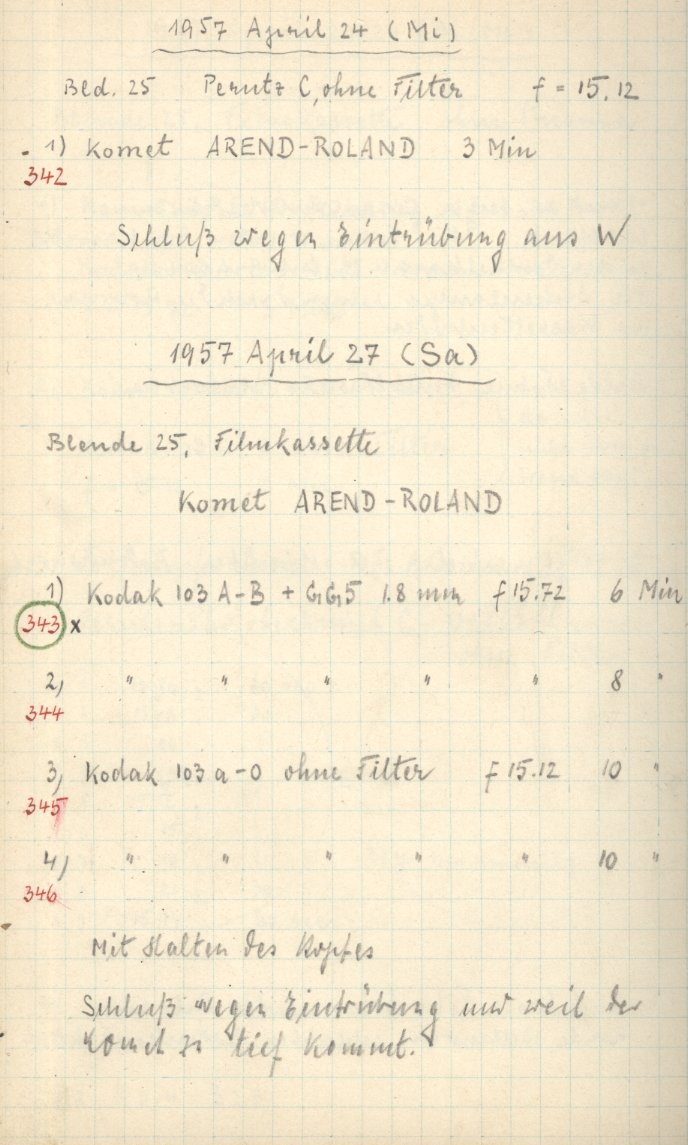 1957 April 24 (Mi)
Bed. 25 Perutz C, ohne Filter f = 15.12
1) Komet AREND-ROLAND 3 Min
342
Schluß wegen Eintrübung aus W
1957 April 27 (Sa)
Blende 25, Filmkassette
Komet AREND-ROLAND
1) Kodak 103 A-B + GG5 1.8 mm f 15.72 6 Min
343 x
2) " " " " " 8 "
344
3) Kodak 103 a-O ohne Filter f 15.12 10 "
345
4) " " " " " 10 "
346
Mit Halten des Kopfes
Schluß wegen Eintrübung und weil der
Komet zu tief kommt.